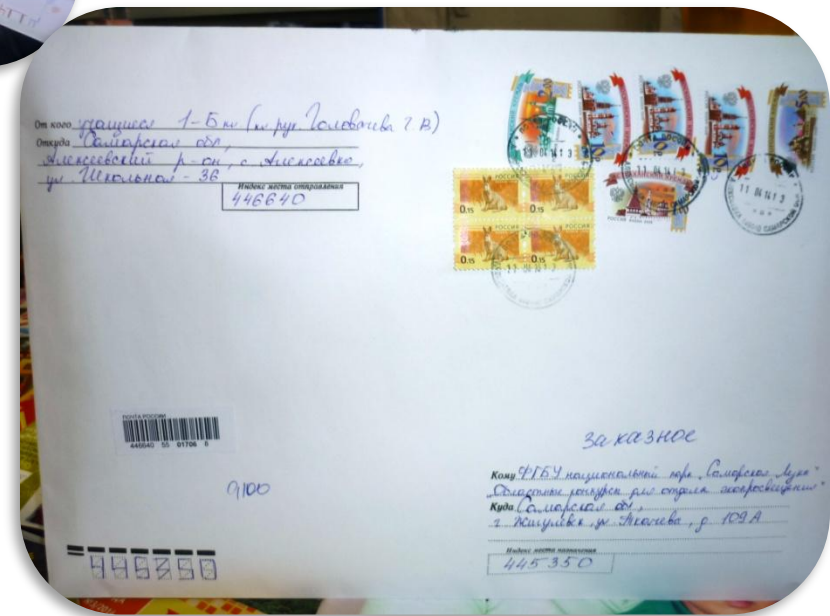 От кого учащиеся 1-Б кл (кл рук. Головачева Г.В)
Откуда Самарская обл,
Алексеевский р-он, с Алексеевка,
ул. Школьная - 36
Индекс места отправления
446640
РОССИЯ РОССИЯ
0.15 0.15
РОССИЯ РОССИЯ
0.15 0.15
ПОЧТА РОССИИ
446640 55 01706 8
9100
заказное
Кому ФГБУ национальный парк "Самарская Лука"
"Областные конкурсы для отдела экопросвещения"
Куда Самарская обл,
г. Жигулевск, ул Ткачева, д. 109А
Индекс места назначения
445350
445350